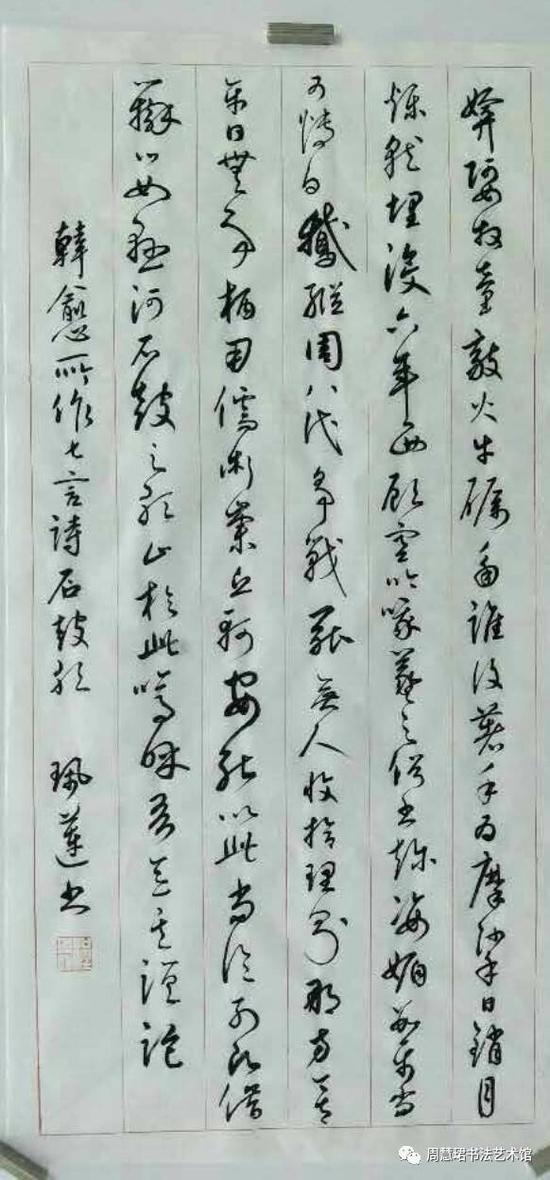 媕婀牧童敲火牛礪角誰復著手為摩挲日銷月
鑠就埋沒六年西顧空吟哦羲之俗書趁姿媚數紙尚
可博白鵝繼周八代爭戰罷無人收拾理則那方今
平日無事柄用儒術崇丘軻安能以此尚論列願借
辯口如懸河石鼓之歌止於此嗚呼吾意其蹉跎
韓愈所作七言詩石鼓歌 珮蓮书
周慧珺书法艺术馆